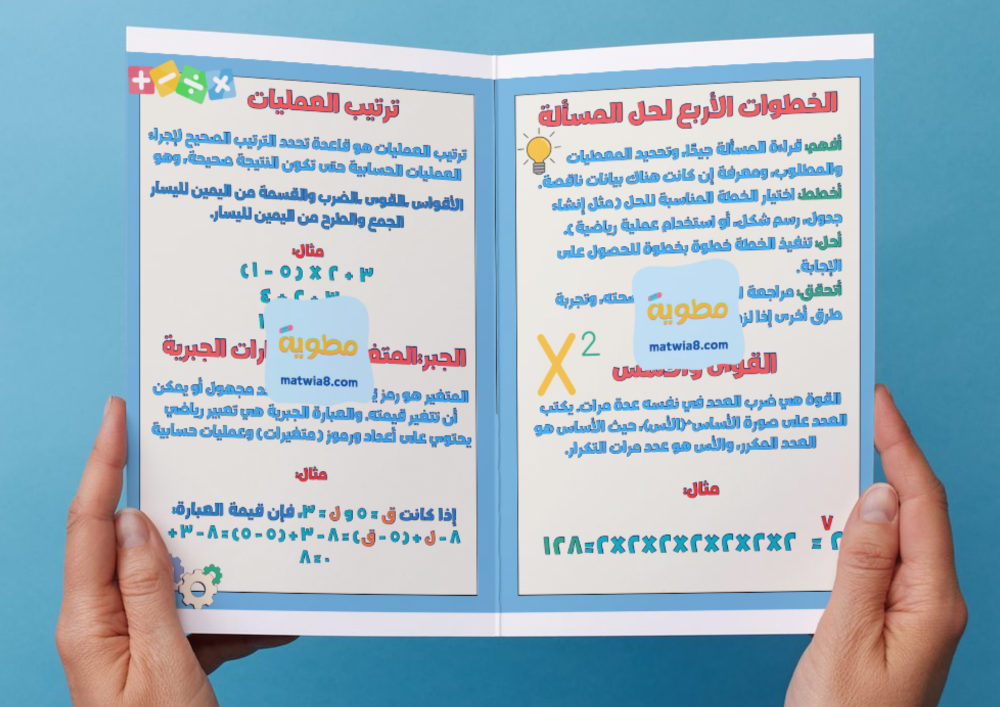 الخطوات الأربع لحل المسألة
أفهم: قراءة المسألة جيدًا، وتحديد المعطيات
والمطلوب، ومعرفة إن كانت هناك بيانات ناقصة.
أخطط: اختيار الخطة المناسبة للحل (مثل إنشاء
جدول، رسم شكل، أو استخدام عملية رياضية).
أحل: تنفيذ الخطة خطوة بخطوة للحصول على
الإجابة.
أتحقق: مراجعة وتجربة
طرق أخرى إذا
مطوية
matwia8.com
X²
القوى
القوة هي ضرب العدد في نفسه عدة مرات. يكتب
العدد على صورة الأساس^(الأس)، حيث الأساس هو
العدد المكرر، والأس هو عدد مرات التكرار.
مثال:
٢٧ = ٢×٢×٢×٢×٢×٢×٢=١٢٨
+ − ÷ ×
ترتيب العمليات
ترتيب العمليات هو قاعدة تحدد الترتيب الصحيح لإجراء
العمليات الحسابية حتى تكون النتيجة صحيحة، وهو
الأقواس ،القوى ،الضرب والقسمة من اليمين لليسار
الجمع والطرح من اليمين لليسار.
مثال:
٣ + ٢ × (٥ - ١)
مطوية
matwia8.com
الجبر: الجبرية
المتغير هو رمز مجهول أو يمكن
أن تتغير قيمته. والعبارة الجبرية هي تعبير رياضي
يحتوي على أعداد ورموز (متغيرات) وعمليات حسابية
مثال:
إذا كانت ق = ٥ و ل = ٣، فإن قيمة العبارة:
٨ - ل + (٥ - ق) = ٨ - ٣ + (٥ - ٥) = ٨ - ٣ +
٠ = ٨